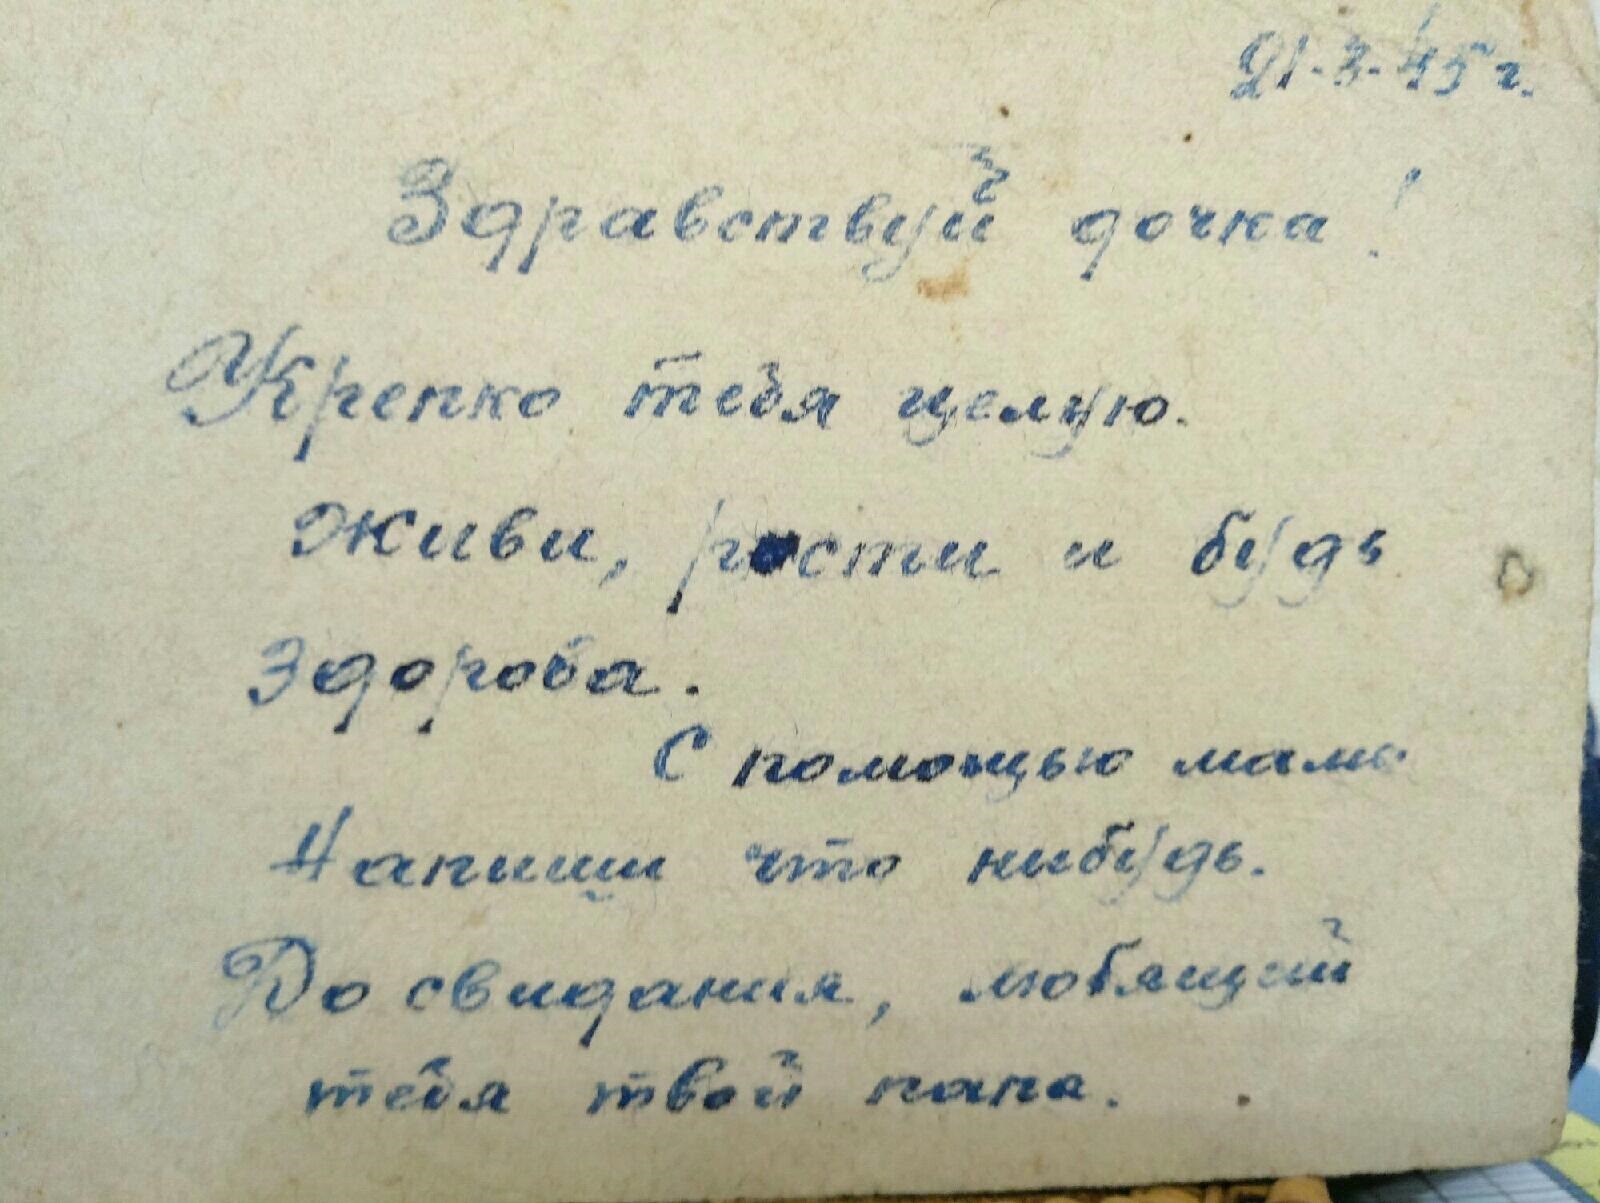 21-3-45 г.
Здравствуй дочка!
Крепко тебя целую.
Живи, рости и будь
здорова.
С помощью мамы
Напиши что нибудь.
До свидания, любящий
тебя твой папа.